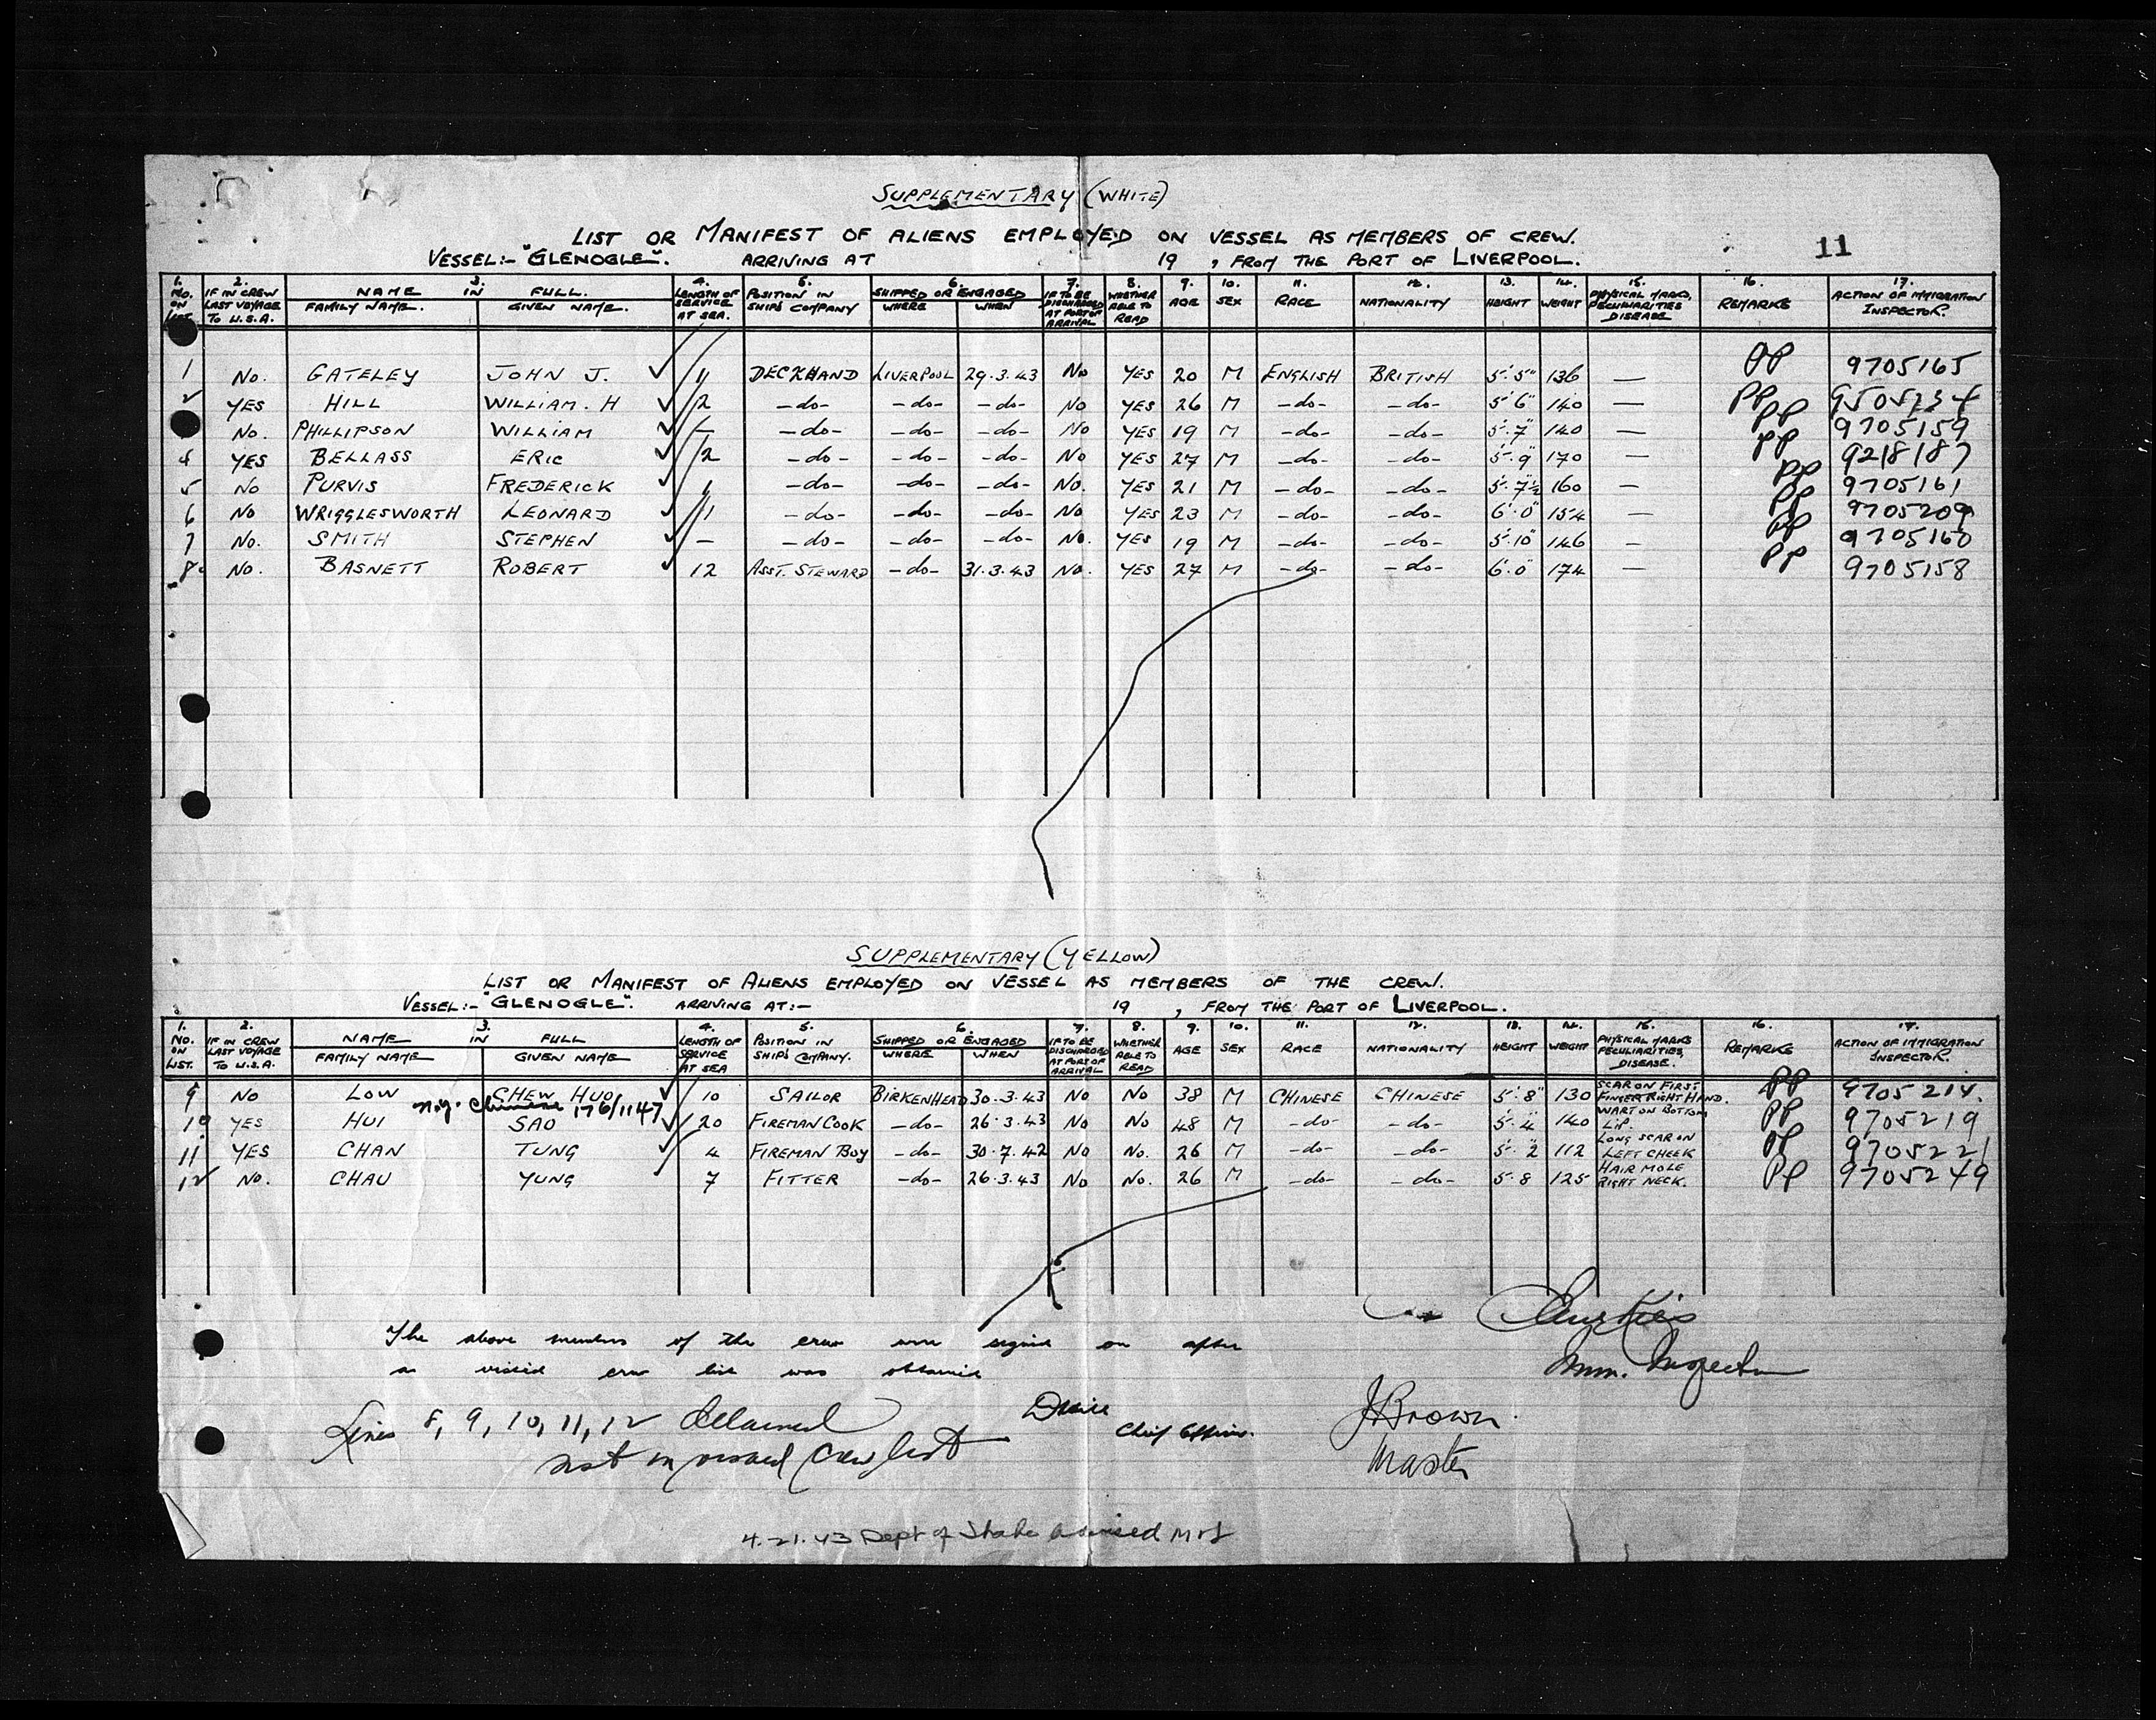 SUPPLEMENTARY (WHITE)
LIST OR MANIFEST OF ALIENS EMPLOYED ON VESSEL AS MEMBERS OF CREW.
VESSEL:- "GLENOGLE". ARRIVING AT 19 , FROM THE PORT OF LIVERPOOL. 11
1. NO. ON LIST. 2. IF IN CREW LAST VOYAGE TO U.S.A. 3. NAME IN FULL. FAMILY NAME. GIVEN NAME. 4. LENGTH OF SERVICE AT SEA. 5. POSITION IN SHIP'S COMPANY 6. SHIPPED OR ENGAGED WHERE WHEN 7. IF TO BE DISCHARGED AT PORT OF ARRIVAL 8. WHETHER ABLE TO READ 9. AGE 10. SEX 11. RACE 12. NATIONALITY 13. HEIGHT 14. WEIGHT 15. PHYSICAL MARKS, PECULIARITIES DISEASE 16. REMARKS 17. ACTION OF IMMIGRATION INSPECTOR.
1 NO. GATELEY JOHN J. ✓ 11 DECKHAND LIVERPOOL 29.3.43 NO YES 20 M ENGLISH BRITISH 5'.5" 136 — PP 9705165
2 YES HILL WILLIAM. H ✓ 2 -do- -do- -do- NO YES 26 M -do- -do- 5'6" 140 — PP
NO. PHILLIPSON WILLIAM ✓ — -do- -do- -do- NO YES 19 M -do- -do- 5'.7" 140 — PP 9705159
4 YES BELLASS ERIC ✓ 2 -do- -do- -do- NO YES 27 M -do- -do- 5'.9" 170 — PP 9218187
5 NO PURVIS FREDERICK ✓ 1 -do- -do- -do- NO. YES 21 M -do- -do- 5'.7½ 160 — PP 9705161
6 NO WRIGGLESWORTH LEONARD ✓ 1 -do- -do- -do- NO YES 23 M -do- -do- 6'.0" 154 — PP 9705209
7 NO. SMITH STEPHEN ✓ — -do- -do- -do- NO. YES 19 M -do- -do- 5'.10" 146 — PP 9705160
8. NO. BASNETT ROBERT ✓ 12 ASST. STEWARD -do- 31.3.43 NO. YES 27 M -do- -do- 6'.0" 174 — PP 9705158
SUPPLEMENTARY (YELLOW)
LIST OR MANIFEST OF ALIENS EMPLOYED ON VESSEL AS MEMBERS OF THE CREW.
VESSEL:- "GLENOGLE". ARRIVING AT:- 19 , FROM THE PORT OF LIVERPOOL.
1. NO. ON LIST. 2. IF IN CREW LAST VOYAGE TO U.S.A. 3. NAME IN FULL FAMILY NAME GIVEN NAME 4. LENGTH OF SERVICE AT SEA 5. POSITION IN SHIP'S COMPANY. 6. SHIPPED OR ENGAGED WHERE WHEN 7. IF TO BE DISCHARGED AT PORT OF ARRIVAL 8. WHETHER ABLE TO READ 9. AGE 10. SEX 11. RACE 12. NATIONALITY 13. HEIGHT 14. WEIGHT 15. PHYSICAL MARKS PECULIARITIES, DISEASE. 16. REMARKS 17. ACTION OF IMMIGRATION INSPECTOR.
9 NO LOW CHEW HUO ✓ 10 SAILOR BIRKENHEAD 30.3.43 NO NO 38 M CHINESE CHINESE 5'.8" 130 SCAR ON FIRST FINGER RIGHT HAND. PP 9705214.
Chinese 176/1147
10 YES HUI SAO ✓ 20 FIREMAN COOK -do- 26.3.43 NO NO 48 M -do- -do- 5'.4" 140 WART ON BOTTOM LIP. PP 9705219
11 YES CHAN TUNG ✓ 4 FIREMAN BOY -do- 30.7.42 NO NO. 26 M -do- -do- 5'.2" 112 LONG SCAR ON LEFT CHEEK PP 9705221
12 NO. CHAU YUNG 7 FITTER -do- 26.3.43 NO NO. 26 M -do- -do- 5.8 125 HAIR MOLE RIGHT NECK. PP 9705249
The above members of the crew were signed on after
a visaed crew list was obtained
Imm. Inspector
Lines 8, 9, 10, 11, 12 detained
not in visaed crew list
Chief Officer.
J. Brown.
Master
4.21.43 Dept of State advised